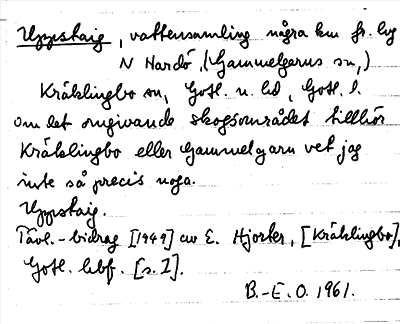 Uggstaig, vattensamling några km fr. byg
N Hardö, (Gammelgarns sn,)
Kräklingbo sn, Gotl. n. hd, Gotl. l.
om det omgivande skogsområdet tillhör
Kräklingbo eller Gammelgarn vet jag
inte så precis noga.
Uggstaig.
Tävl.-bidrag [1949] av E. Hjorter, [Kräklingbo],
Gotl. hbf. [s. 1].
B.-E. O. 1961.